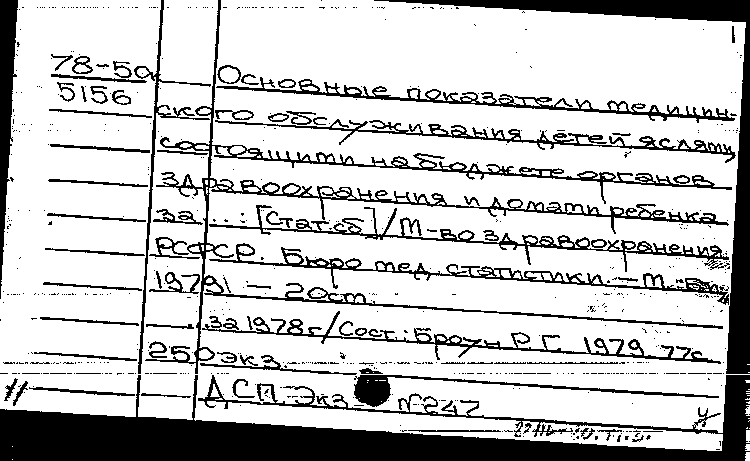 78-50
5156
Основные показатели медицин-
ского обслуживания детей, яслями,
состоящими на бюджете органов
здравоохранения и домами ребенка
за ...: [Стат.сб.]/М-во здравоохранения
РСФСР. Бюро мед. статистики. — М.:
1979 — 20см.
...за 1978г/Сост.: Броун Р.Г. 1979. 77с.
250экз.
ДСП. Экз №247